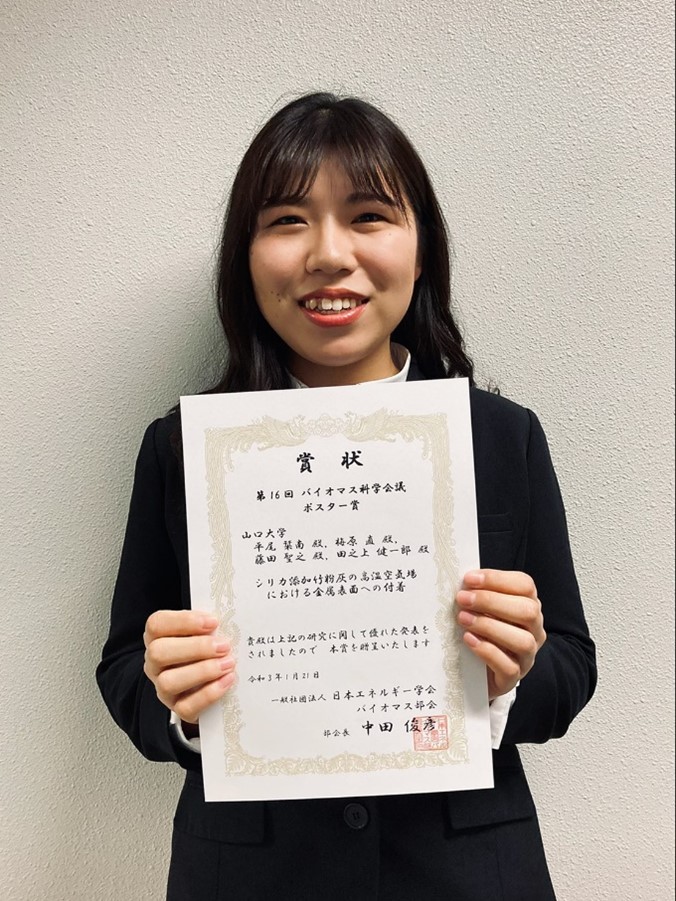 賞状
第16回 バイオマス科学会議
ポスター賞
山口大学
平尾 栞南 殿、梅原 直 殿、
藤田 聖之 殿、田之上 健一郎 殿
シリカ添加竹粉灰の高温空気場
における金属表面への付着
貴殿は上記の研究に関して優れた発表を
されましたので 本賞を贈呈いたします
令和3年1月21日
一般社団法人 日本エネルギー学会
バイオマス部会
部会長 中田 俊彦